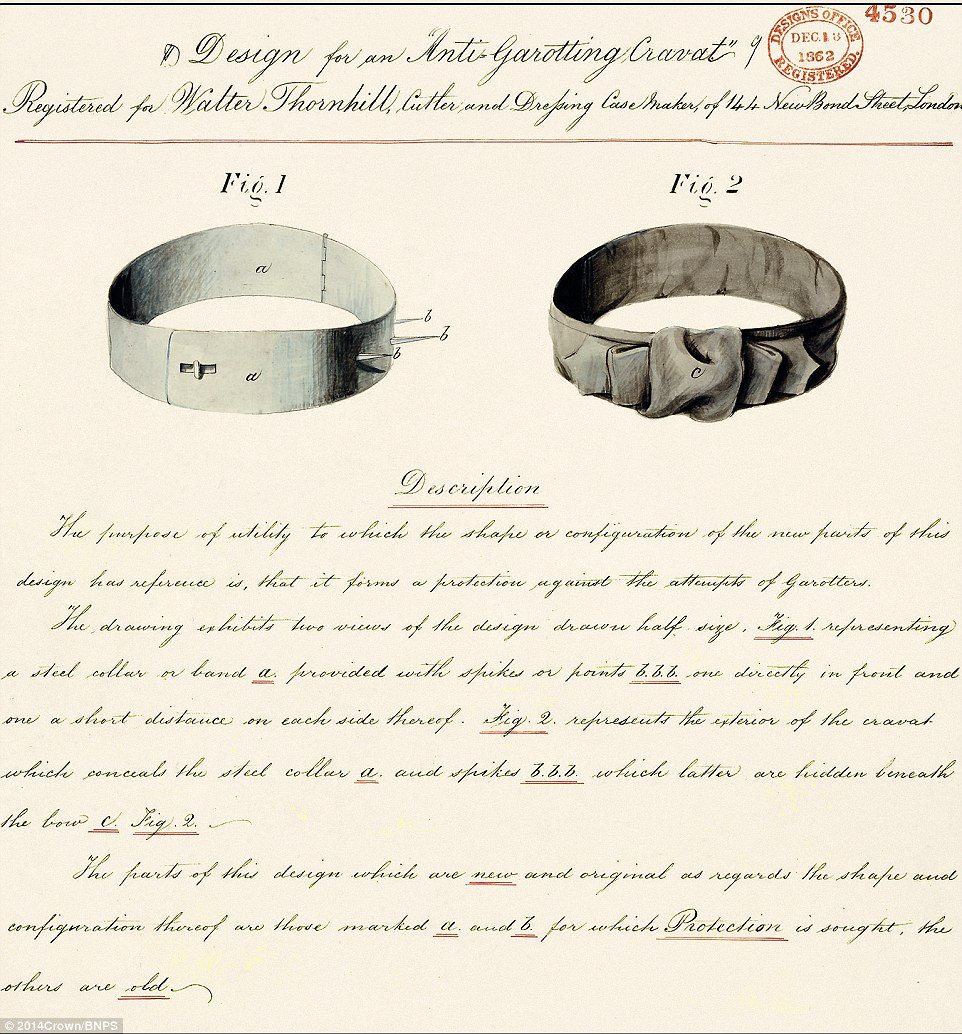 4530
DESIGNS OFFICE
DEC. 18
1862
REGISTERED.
Design for an "Anti-Garotting Cravat"
Registered for Walter Thornhill, Cutler and Dressing Case Maker, of 144 New Bond Street, London
Fig. 1
Fig. 2
a
b
b
b
a
c
Description
The purpose of utility to which the shape or configuration of the new parts of this
design has reference is, that it forms a protection against the attempts of Garotters.
The drawing exhibits two views of the design drawn half size, Fig. 1. representing
a steel collar or band a. provided with spikes or points b.b.b. one directly in front and
one a short distance on each side thereof. Fig. 2. represents the exterior of the cravat
which conceals the steel collar a. and spikes b.b.b. which latter are hidden beneath
the bow c. Fig. 2.
The parts of this design which are new and original as regards the shape and
configuration thereof are those marked a. and b. for which Protection is sought, the
others are old.
© 2014Crown/BNPS